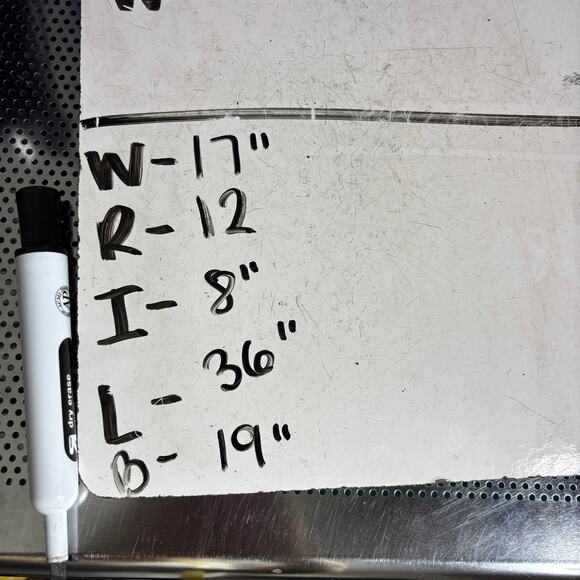 W- 17"
R- 12
I- 8"
L- 36"
B- 19"
dry erase
AP